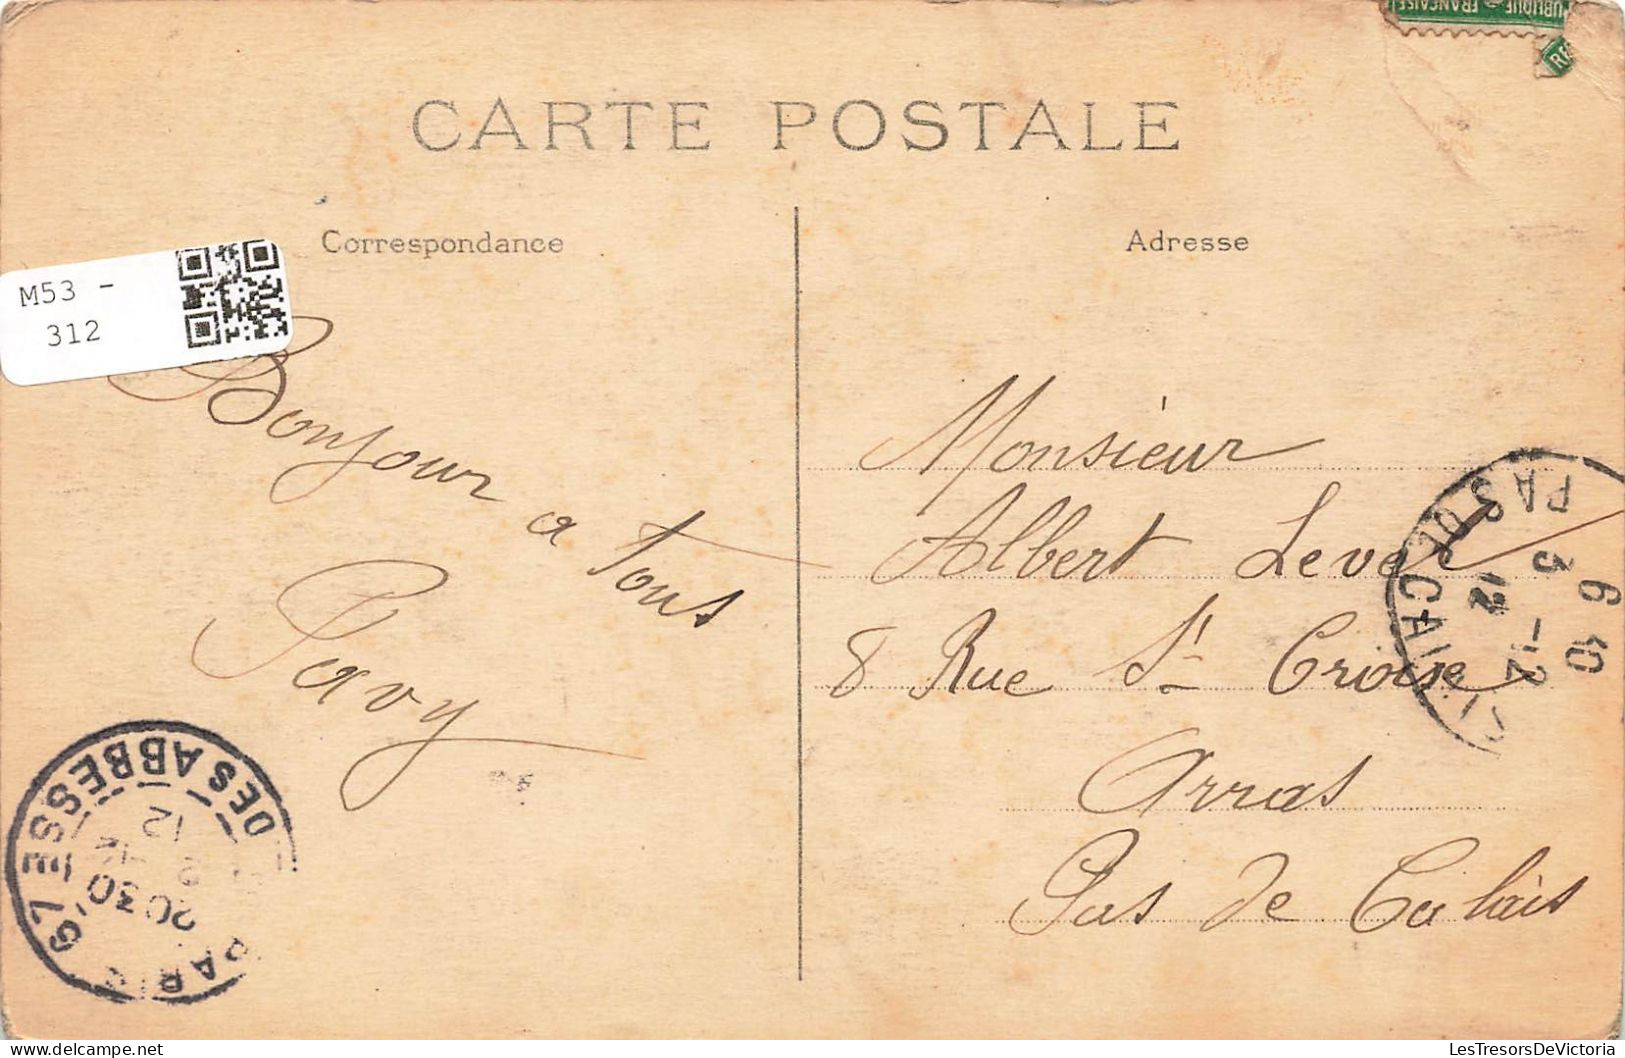 PUBLIQUE FRANÇAISE
RF
CARTE POSTALE
Correspondance
Adresse
M53 -
312
Bonjour
a tous
Pavy
Monsieur
Albert Level
8 Rue St Croise
Arras
Pas de Calais
PAS DE CALAIS
6 10
3 - 12
12
PARIS 67
DES ABBESSES
20 30
12
LesTresorsDeVictoria